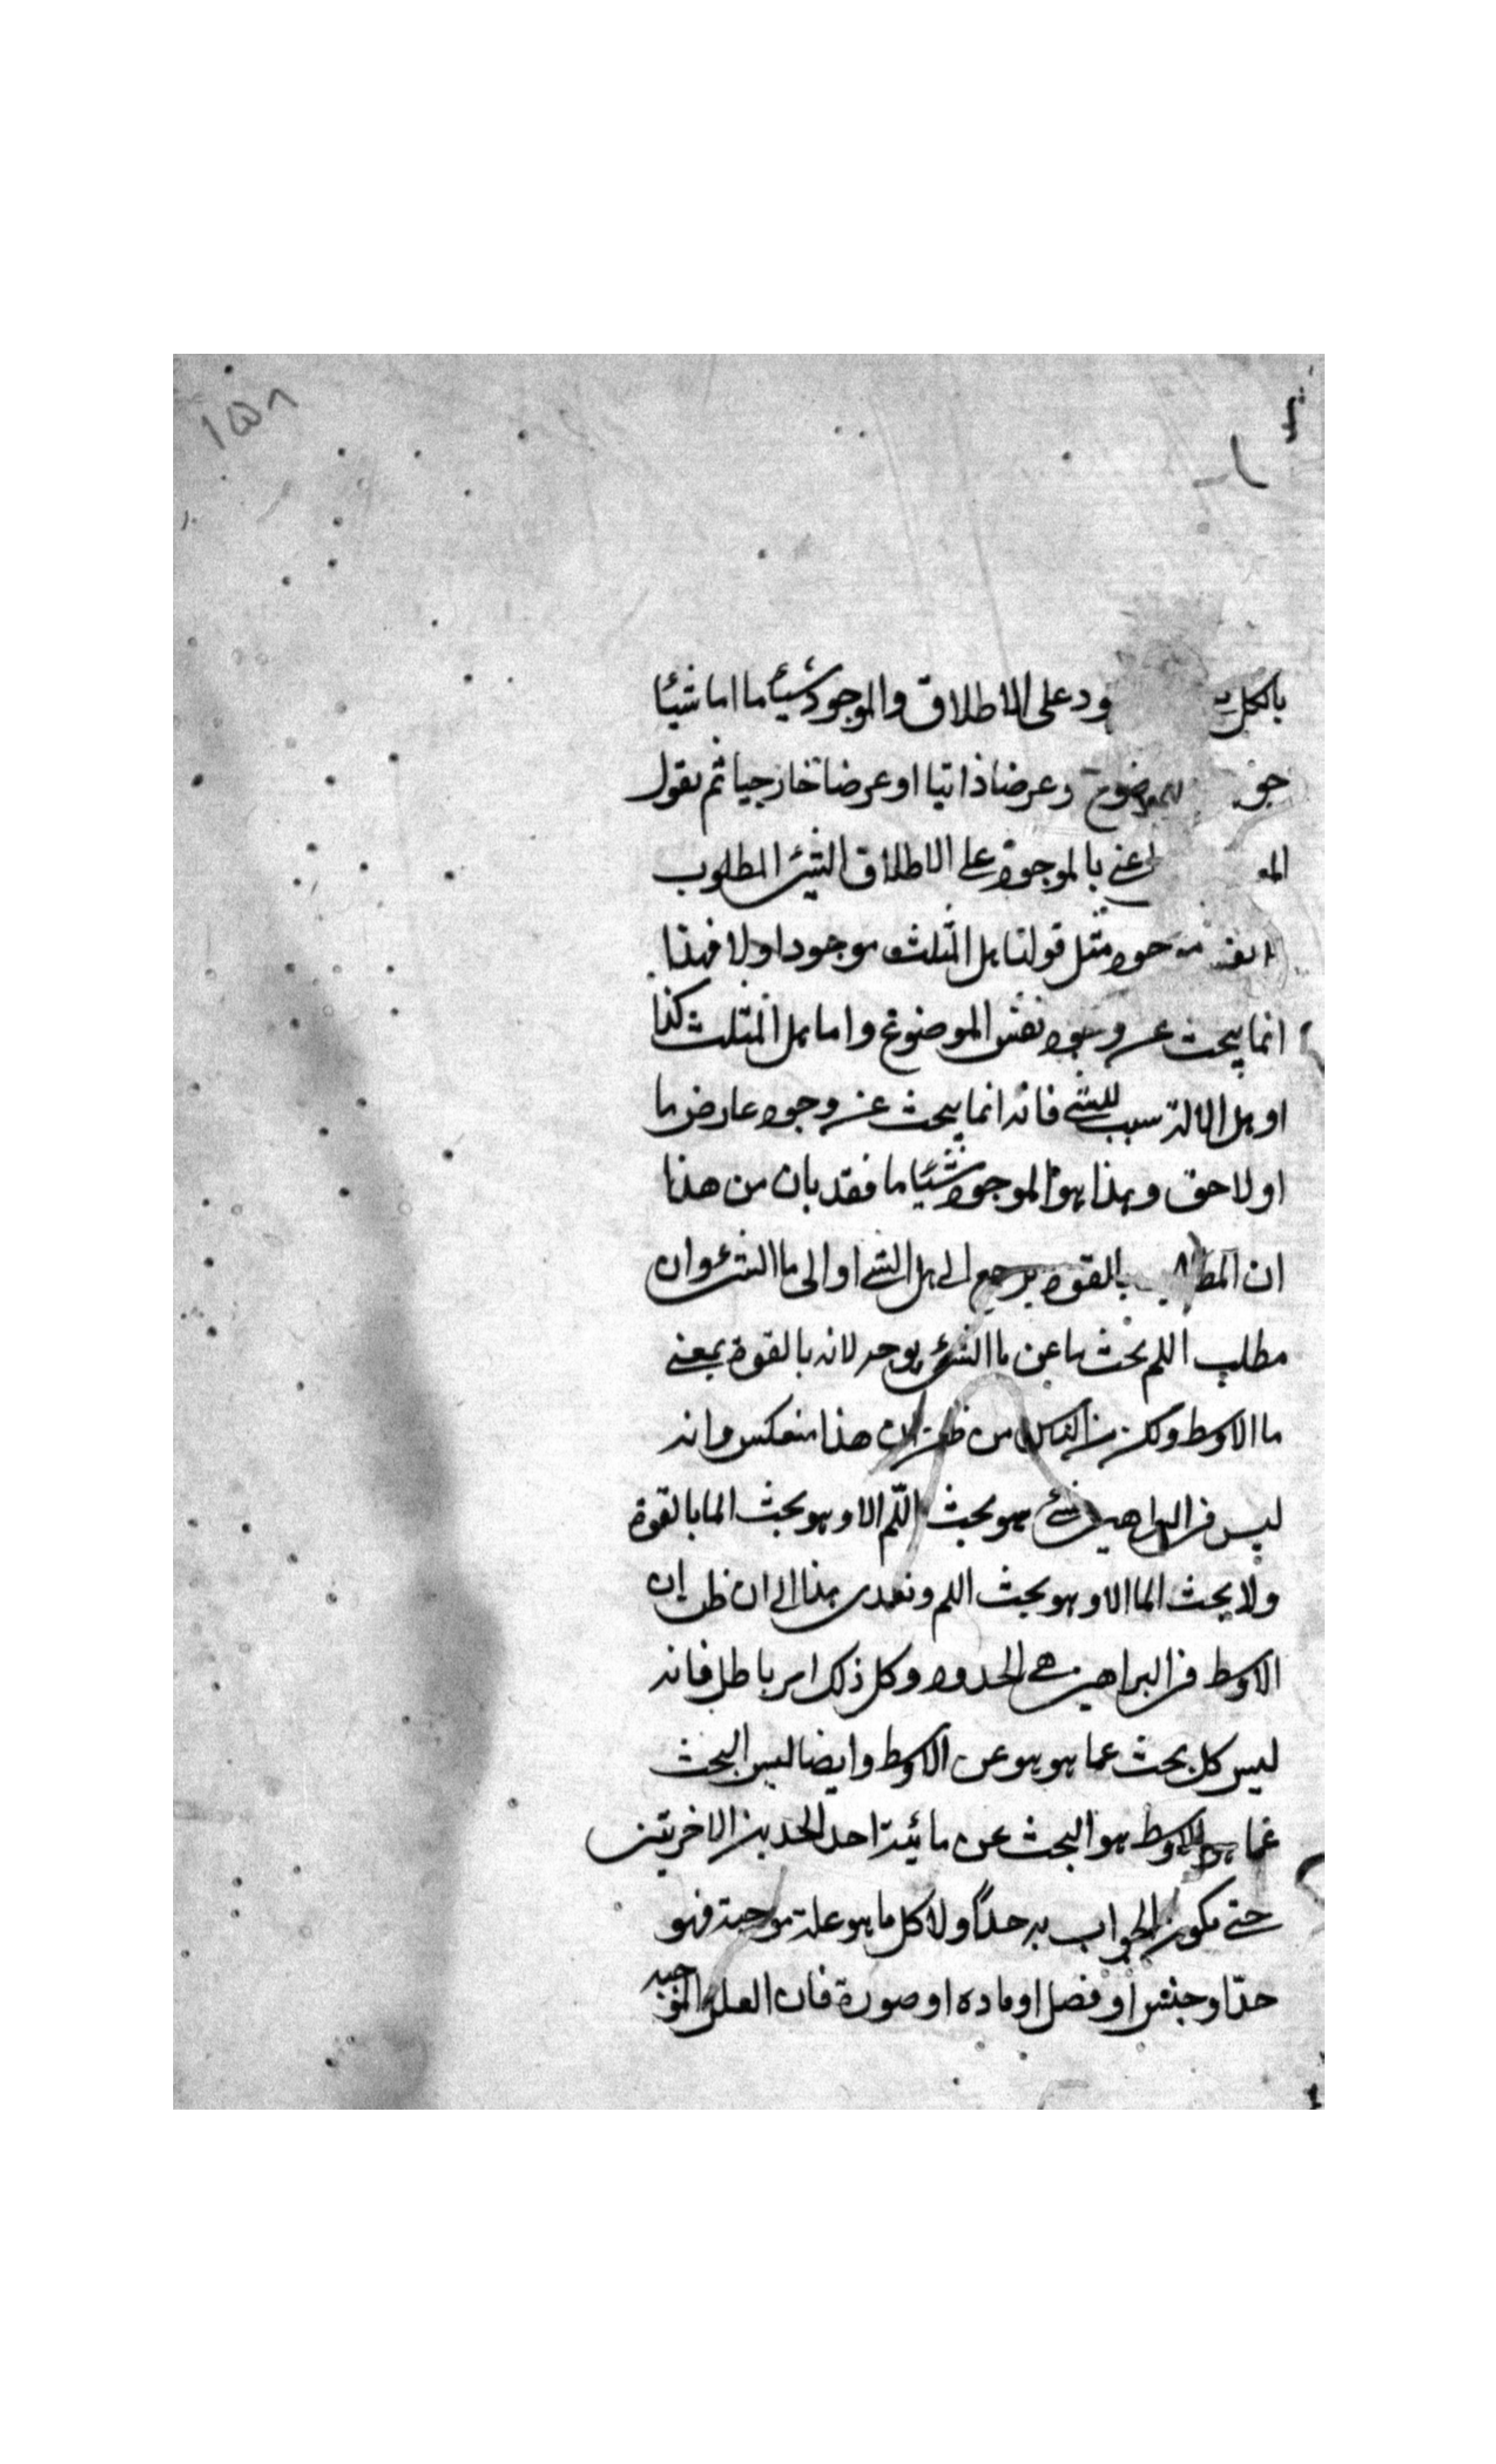 ١٥٨
بالكل ود على الاطلاق والموجود شيئا ما اما شيئا
وعرضا ذاتيا او عرضا خارجيا ثم نقول
اعني بالموجود على الاطلاق الشيء المطلوب
مثل قولنا هل المثلث موجود اولا فهذا
انما يبحث عن وجود نفس الموضوع واما هل المثلث كذا
او هل الالة سبب للشي فانه انما يبحث عن وجود عارض ما
او لاحق وهذا هو الموجود شيئا ما فقد بان من هذا
ان بالقوة يرجع الى هل الشي او الى ما الشيء وان
مطلب اللم بحث ما عن ما الشيء يوجد لانه بالقوة بمعنى
ما الاوسط ولكن من ظن ان هذا منعكس وانه
ليس في البراهين شيء هو بحث اللم الا وهو بحث الما بالقوة
ولا بحث الما الا وهو بحث اللم وتعدى هذا الى ان ظن ان
الاوسط في البراهين هي الحدود وكل ذلك امر باطل فانه
ليس كل بحث عما هو هو عن الاوسط وايضا ليس البحث
عما هو الاوسط هو البحث عن مائية احد الحدين الاخريين
حتى يكون الجواب به حدا ولا كل ما هو علة موجبة فهو
حدا وجنس او فصل او ماده او صورة فان العلل الموجبه